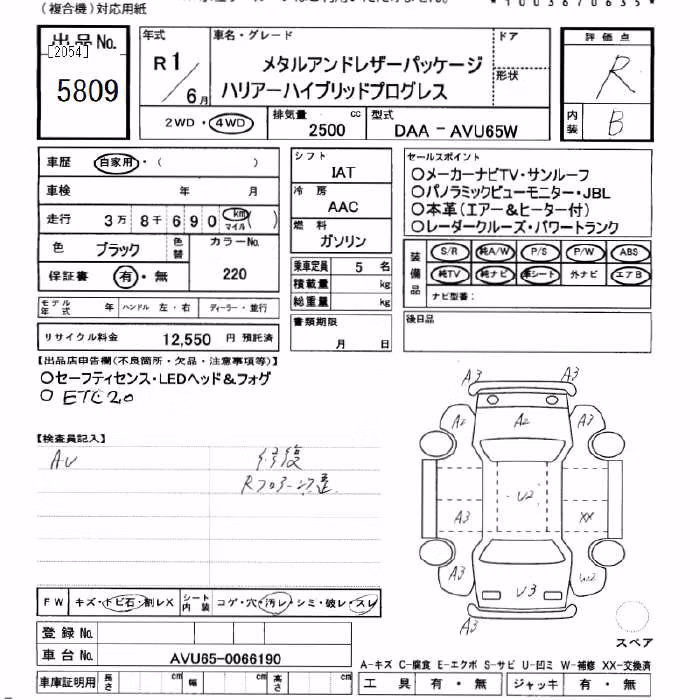 (複合機)対応用紙
*1003670635*
出品No.
[2054]
5809
年式
R1/6月
車名・グレード
メタルアンドレザーパッケージ
ハリアーハイブリッドプログレス
ドア
形状
評価点
R
内装
B
2WD・4WD
排気量
2500
cc
型式
DAA - AVU65W
車歴
自家用・( )
車検
年 月
走行
3万 8千 6 9 0 km マイル ( )
色
ブラック
色替
カラーNo.
220
保証書
有・無
シフト
IAT
冷房
AAC
燃料
ガソリン
乗車定員 5 名
積載量 kg
総重量 kg
セールスポイント
○メーカーナビTV・サンルーフ
○パノラミックビューモニター・JBL
○本革(エアー&ヒーター付)
○レーダークルーズ・パワートランク
装備品
S/R 純A/W P/S P/W ABS
純TV 純ナビ 革シート 外ナビ エアB
ナビ型番:
モデル年式 年
ハンドル 左・右
ディーラー・並行
リサイクル料金 12,550 円 預託済
書類期限
月 日
後日品
【出品店申告欄(不良箇所・欠品・注意事項等)】
○セーフティセンス・LEDヘッド&フォグ
○ ETC2.0
【検査員記入】
AU
修復
A3 A3
A2 A2 A3
U2
A3 XX
A3
U3
A3
スペア
FW キズ・トビ石・割レX
シート内装 コゲ・穴・汚レ・シミ・破レ・スレ
登録No.
車台No. AVU65-0066190
車庫証明用 長さ cm 幅 cm 高さ cm
A-キズ C-腐食 E-エクボ S-サビ U-凹ミ W-補修 XX-交換済
工具 有・無 ジャッキ 有・無